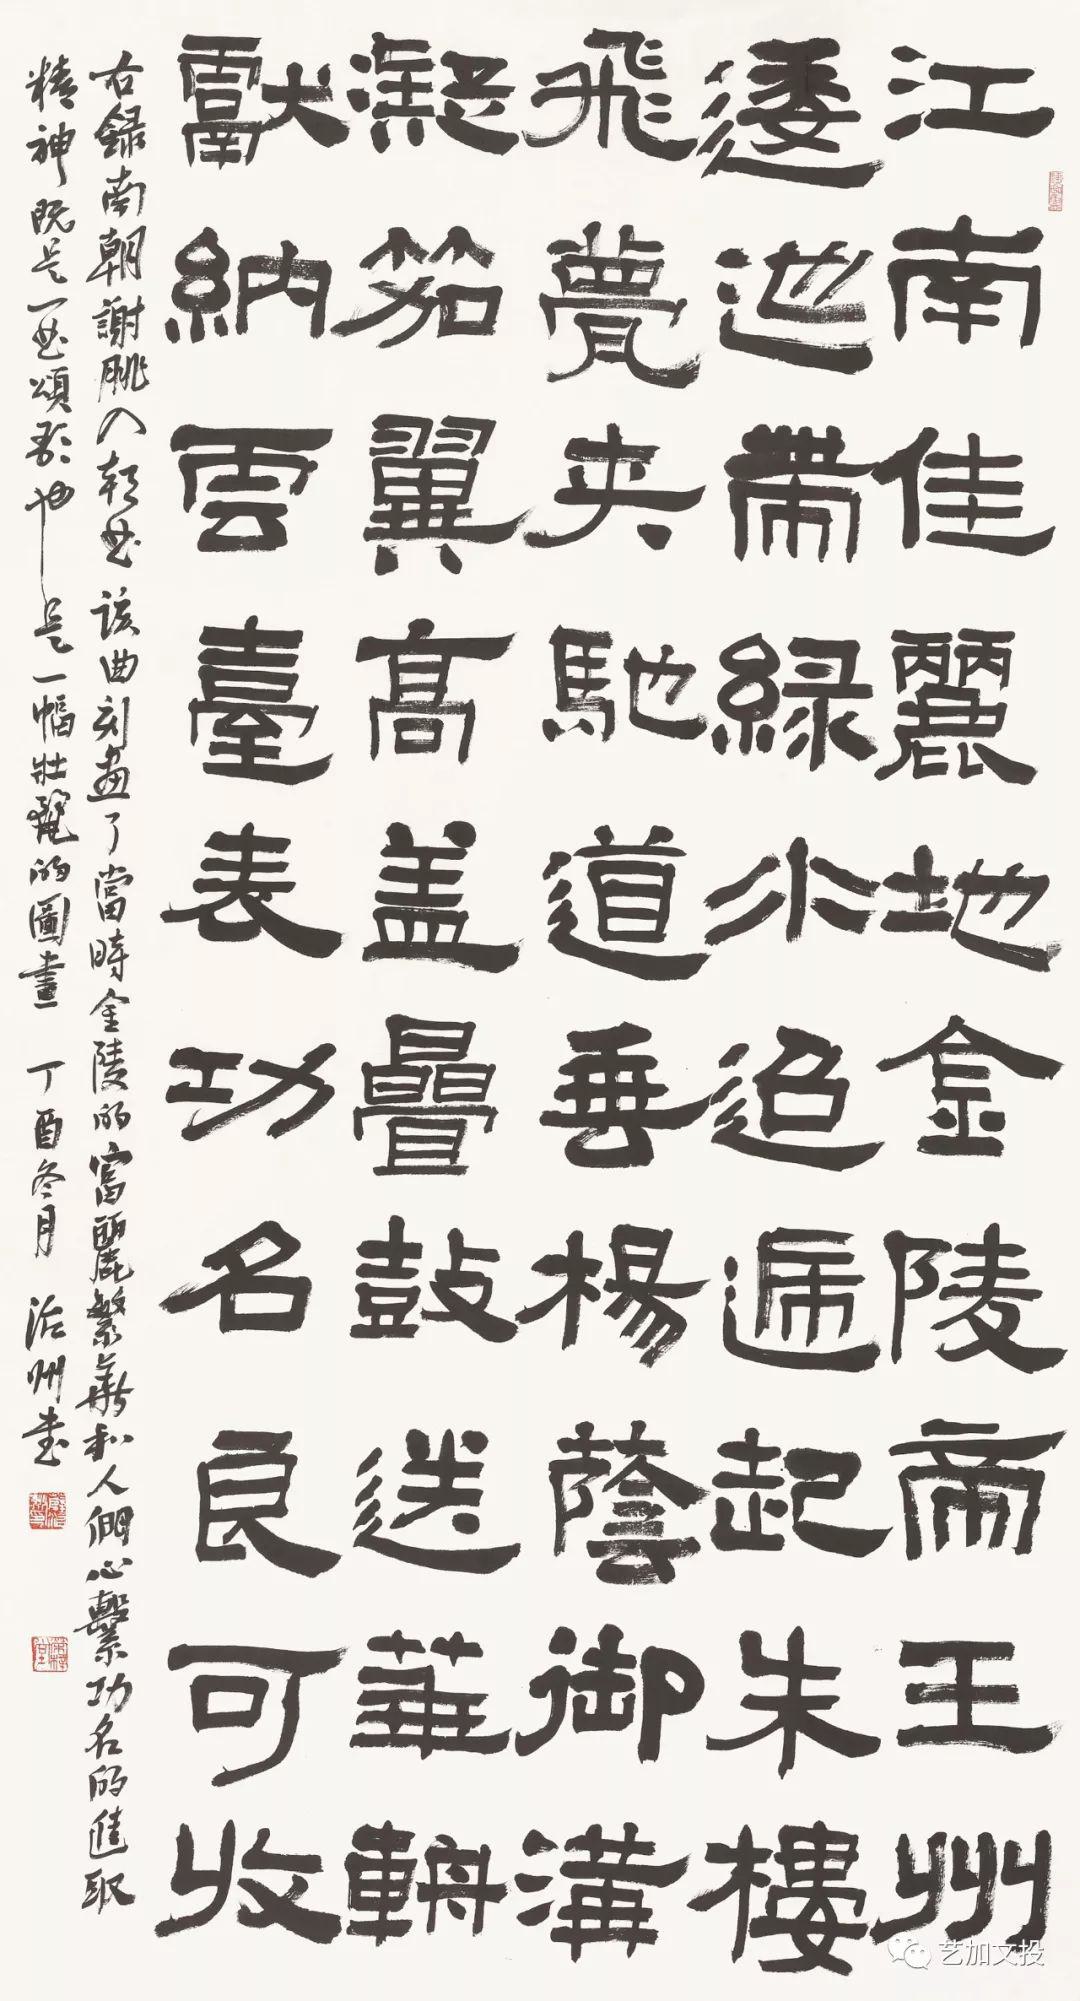 江南佳麗地金陵帝王州
逶迆帶緑水迢遞起朱樓
飛甍夾馳道垂楊蔭御溝
凝笳翼高盖疊鼓送華輈
獻納雲臺表功名良可收
右録南朝謝朓入朝曲該曲刻畫了當時金陵的富麗繁華和人們心繫功名的進取
精神既是一曲頌歌也是一幅壯麗的圖畫 丁酉冬月 治州書
艺加文投